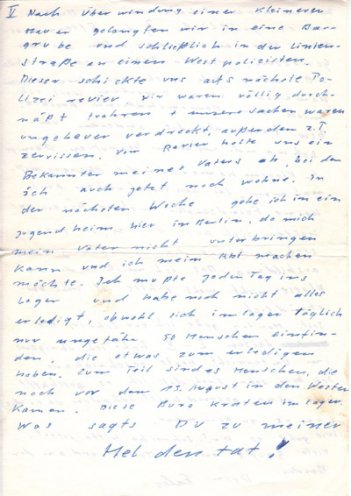 II Nach Überwindung einer kleineren
Mauer gelangten wir in eine Bau-
grube und schließlich in der Linien-
straße an einem Westpolizisten.
Dieser schickte uns aufs nächste Po-
lizeirevier. wir waren völlig durch-
näßt + unsere Sachen waren
ungeheuer verdreckt, außerdem z.T.
zerrissen. Vom Revier holte uns ein
Bekannter meines Vaters ab, bei dem
ich auch jetzt noch wohne. In
der nächsten Woche gehe ich in ein
Jugendheim hier in Berlin, da mich
mein Vater nicht unterbringen
kann und ich mein Abi machen
möchte. Ich mußte jeden Tag ins
Lager und habe noch nicht alles
erledigt, obwohl sich im Lager täglich
nur ungefähr 50 Menschen einfin-
den, die etwas zu erledigen
haben. Zum Teil sind es Menschen, die
noch vor dem 13. August in den Westen
kamen. Diese Bürokraten im Lager.
Was sagts DU zu meiner
Heldentat!